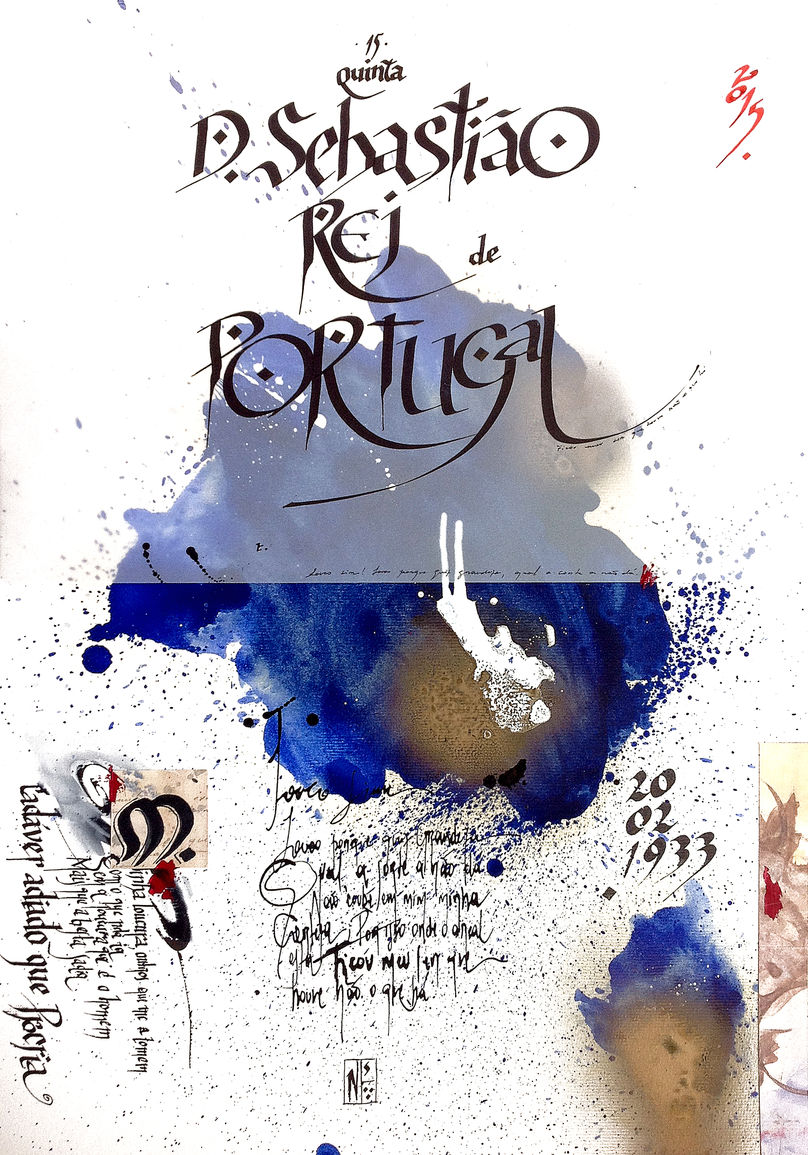 ·15·
Quinta
D. Sebastião
Rei
de
Portugal
2015.
Louco sim! Louco porque quis grandeza, qual a sorte a não dá
Louco, sim,
Louco porque quis grandeza
Qual a sorte a não dá
Não coube em mim minha
Certeza Por isso onde o areal
está Ficou meu ser que
houve não o que há
20
02
1933
M.
Minha loucura, outros que me a tomem
Com o que nela ia
Sem a loucura que é o homem
Mais que a besta sadia
Cadáver adiado que Procria
N